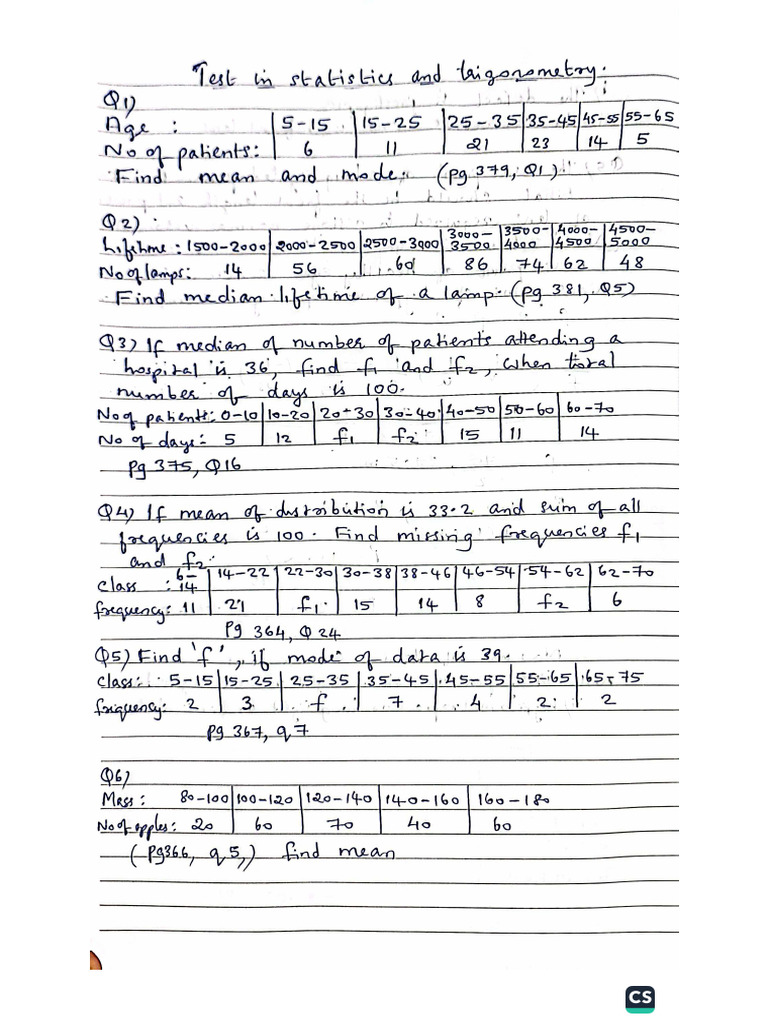 Test in statistics and trigonometry.
Q1)
Age : 5-15 15-25 25-35 35-45 45-55 55-65
No of patients: 6 11 21 23 14 5
Find mean and mode. (pg 379, Q1)
Q2)
Lifetime : 1500-2000 2000-2500 2500-3000 3000-3500 3500-4000 4000-4500 4500-5000
No of lamps: 14 56 60 86 74 62 48
Find median lifetime of a lamp. (pg 381, Q5)
Q3) If median of number of patients attending a
hospital is 36, find f1 and f2, when total
number of days is 100.
No of patients: 0-10 10-20 20-30 30-40 40-50 50-60 60-70
No of days: 5 12 f1 f2 15 11 14
Pg 375, Q16
Q4) If mean of distribution is 33.2 and sum of all
frequencies is 100. Find missing frequencies f1
and f2.
Class : 6-14 14-22 22-30 30-38 38-46 46-54 54-62 62-70
frequency: 11 21 f1 15 14 8 f2 6
Pg 364, Q24
Q5) Find 'f', if mode of data is 39.
Class: 5-15 15-25 25-35 35-45 45-55 55-65 65-75
frequency: 2 3 f 7 4 2 2
Pg 367, q7
Q6)
Mass: 80-100 100-120 120-140 140-160 160-180
No of apples: 20 60 70 40 60
(Pg366, q5,) find mean
CS